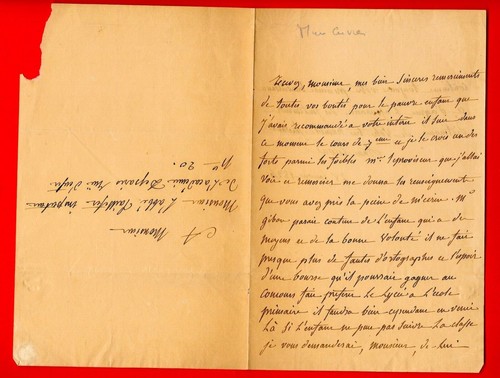 Mme Cuvier
Recevez, monsieur, mes bien sincères remerciments
de toutes vos bontés pour le pauvre enfant que
j'avais recommandé a votre interet il suit dans
ce moment le cours de 7ème et je le crois un des
forts parmi les foibles mr. le proviseur que j'allai
voir et remercier me donna les renseignements
que vous avez pris la peine de m'ecrire. Mr
gibon parait content de l'enfant qui a de
moyens et de la bonne volonté il ne fait
presque plus de fautes d'ortographes et l'espoir
d'une bourse qu'il pourrait gagner au
concours fait préférer le Lycée a L'école
primaire il faudra bien cependant en venir
Là si L'enfant ne peut pas suivre La classe
je vous demanderai, monsieur, de lui
A Monsieur
Monsieur L'abbé
De L'académie De paris rue
No 20.